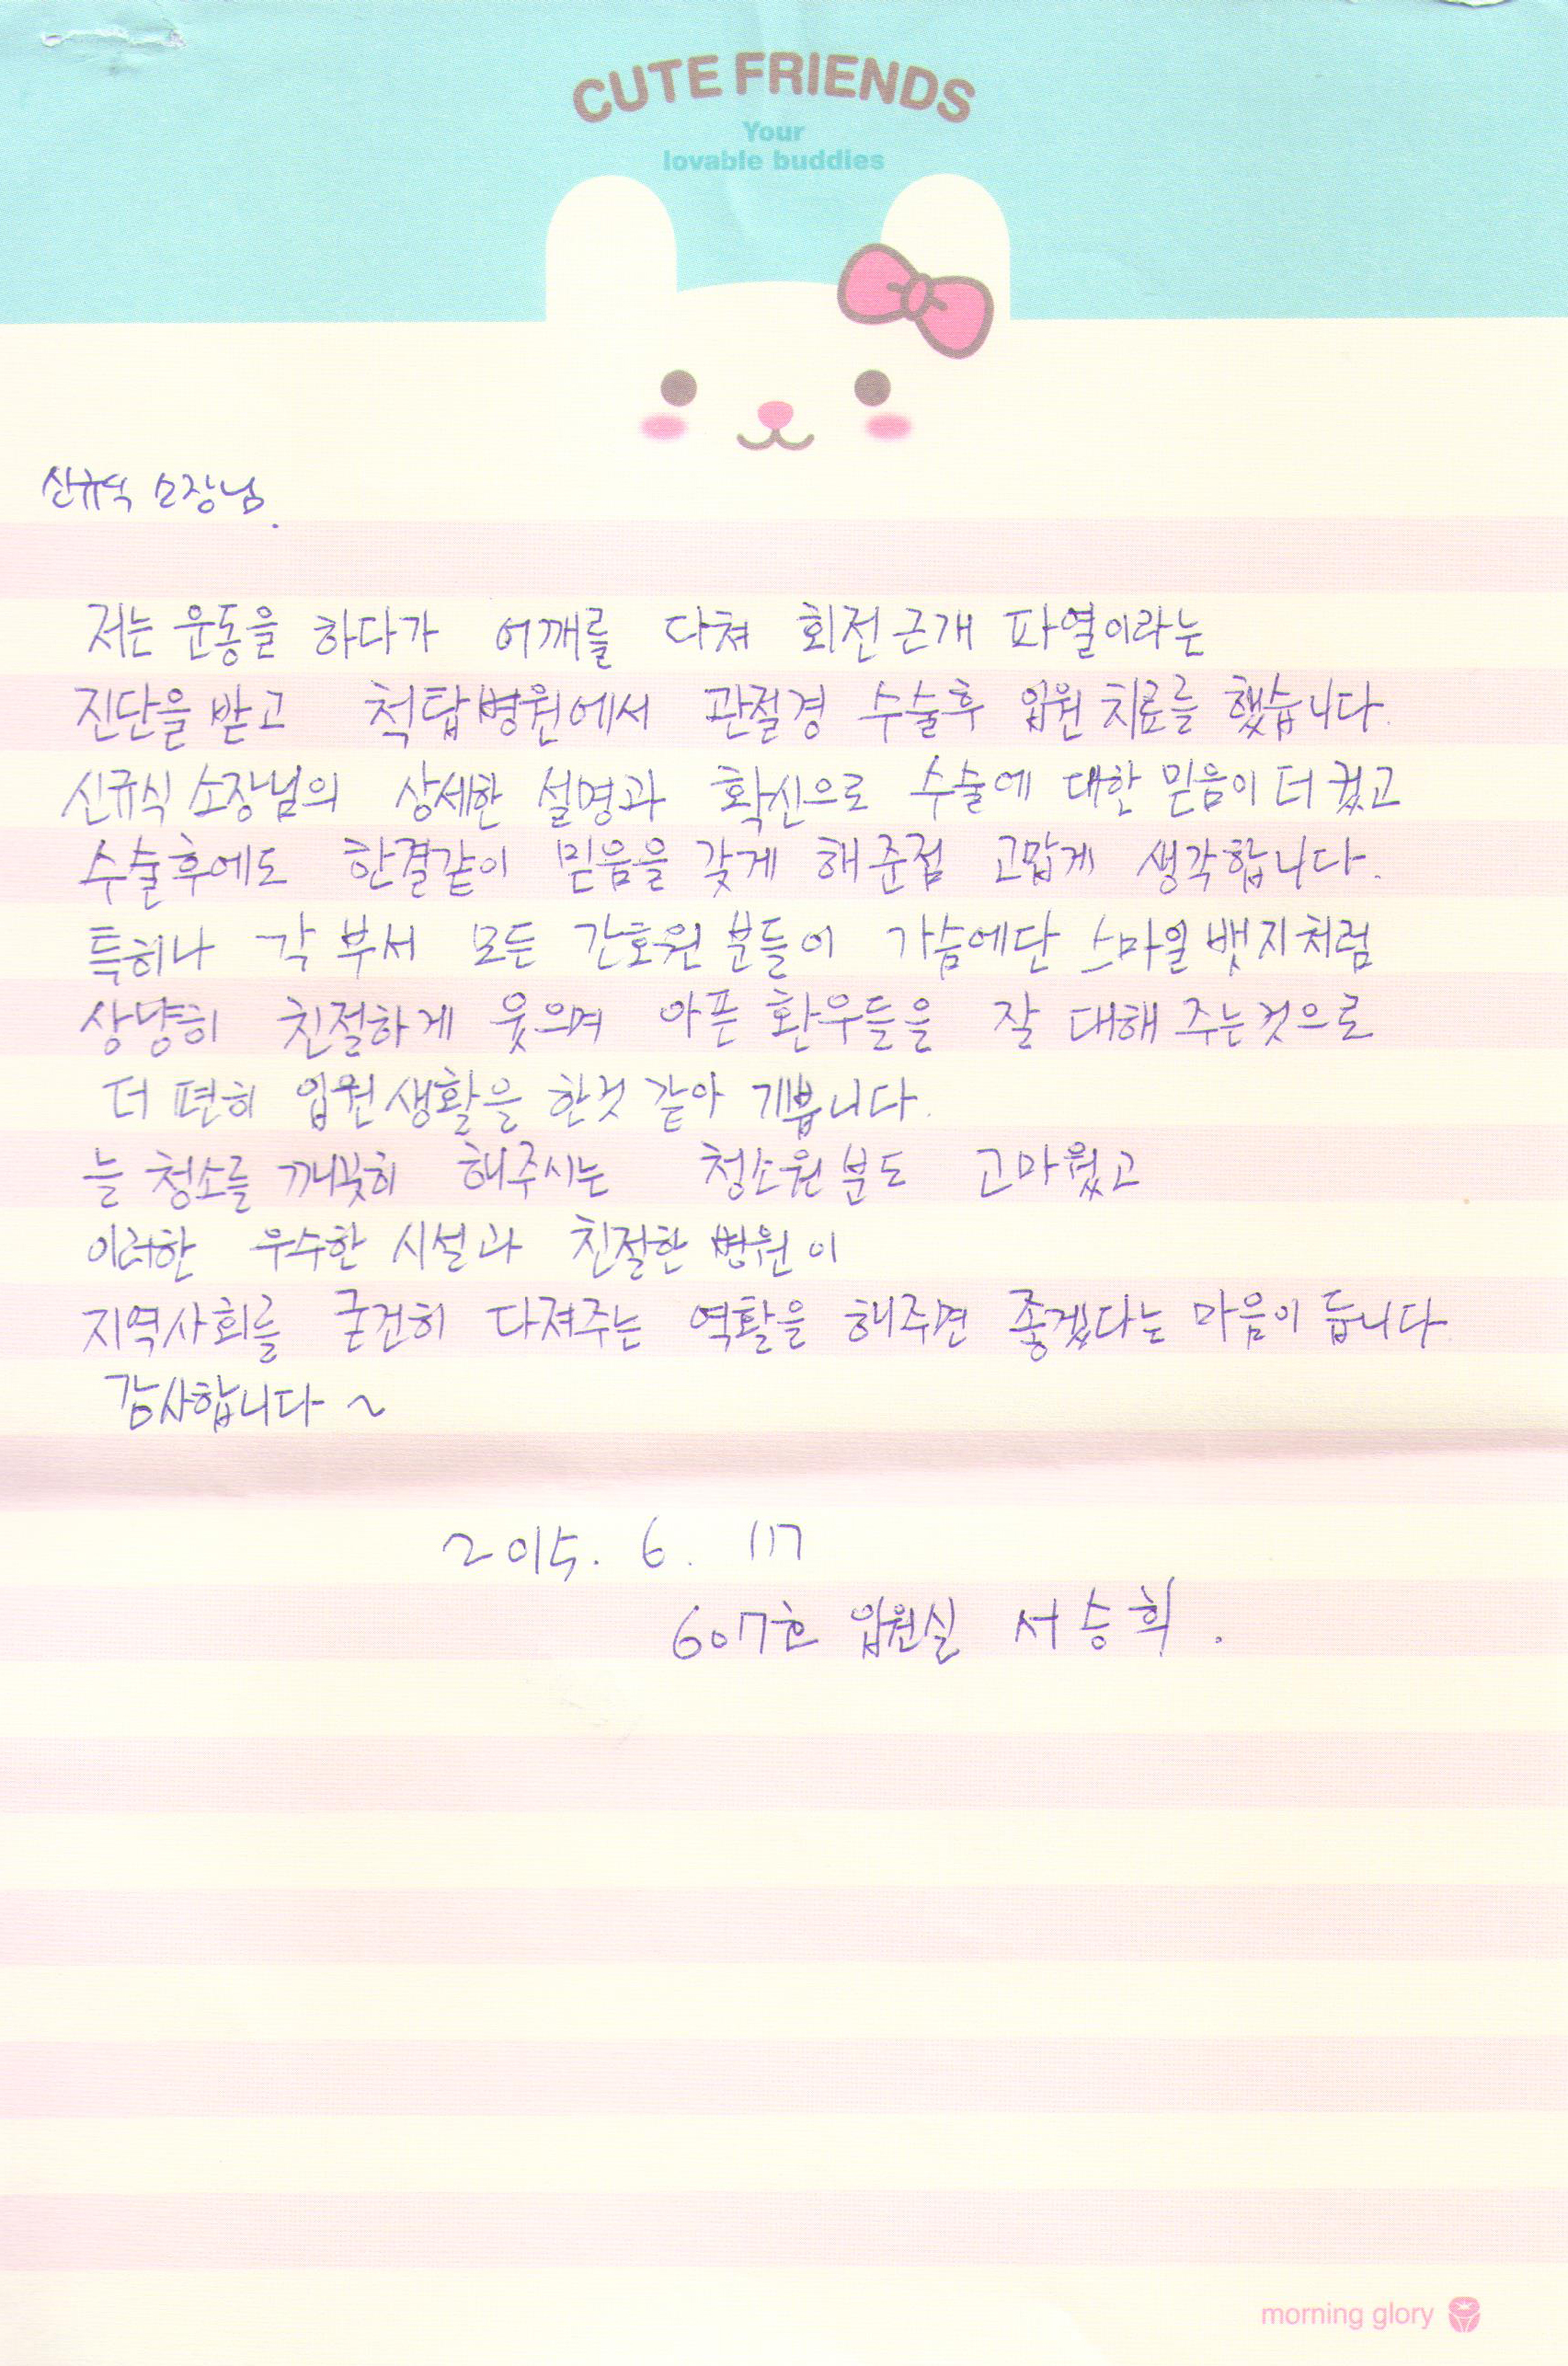 CUTE FRIENDS
Your
lovable buddies
신규식 소장님.
저는 운동을 하다가 어깨를 다쳐 회전근개 파열이라는
진단을 받고 척탑병원에서 관절경 수술후 입원 치료를 했습니다.
신규식 소장님의 상세한 설명과 확신으로 수술에 대한 믿음이 더 컸고
수술후에도 한결같이 믿음을 갖게 해준점 고맙게 생각합니다.
특히나 각 부서 모든 간호원 분들이 가슴에단 스마일 뱃지처럼
상냥히 친절하게 웃으며 아픈 환우들을 잘 대해 주는것으로
더 편히 입원생활을 한것 같아 기쁩니다.
늘 청소를 깨끗히 해주시는 청소원분도 고마웠고
이러한 우수한 시설과 친절한 병원이
지역사회를 굳건히 다져주는 역활을 해주면 좋겠다는 마음이 듭니다
감사합니다 ~
2015. 6. 17
607호 입원실 서승희.
morning glory